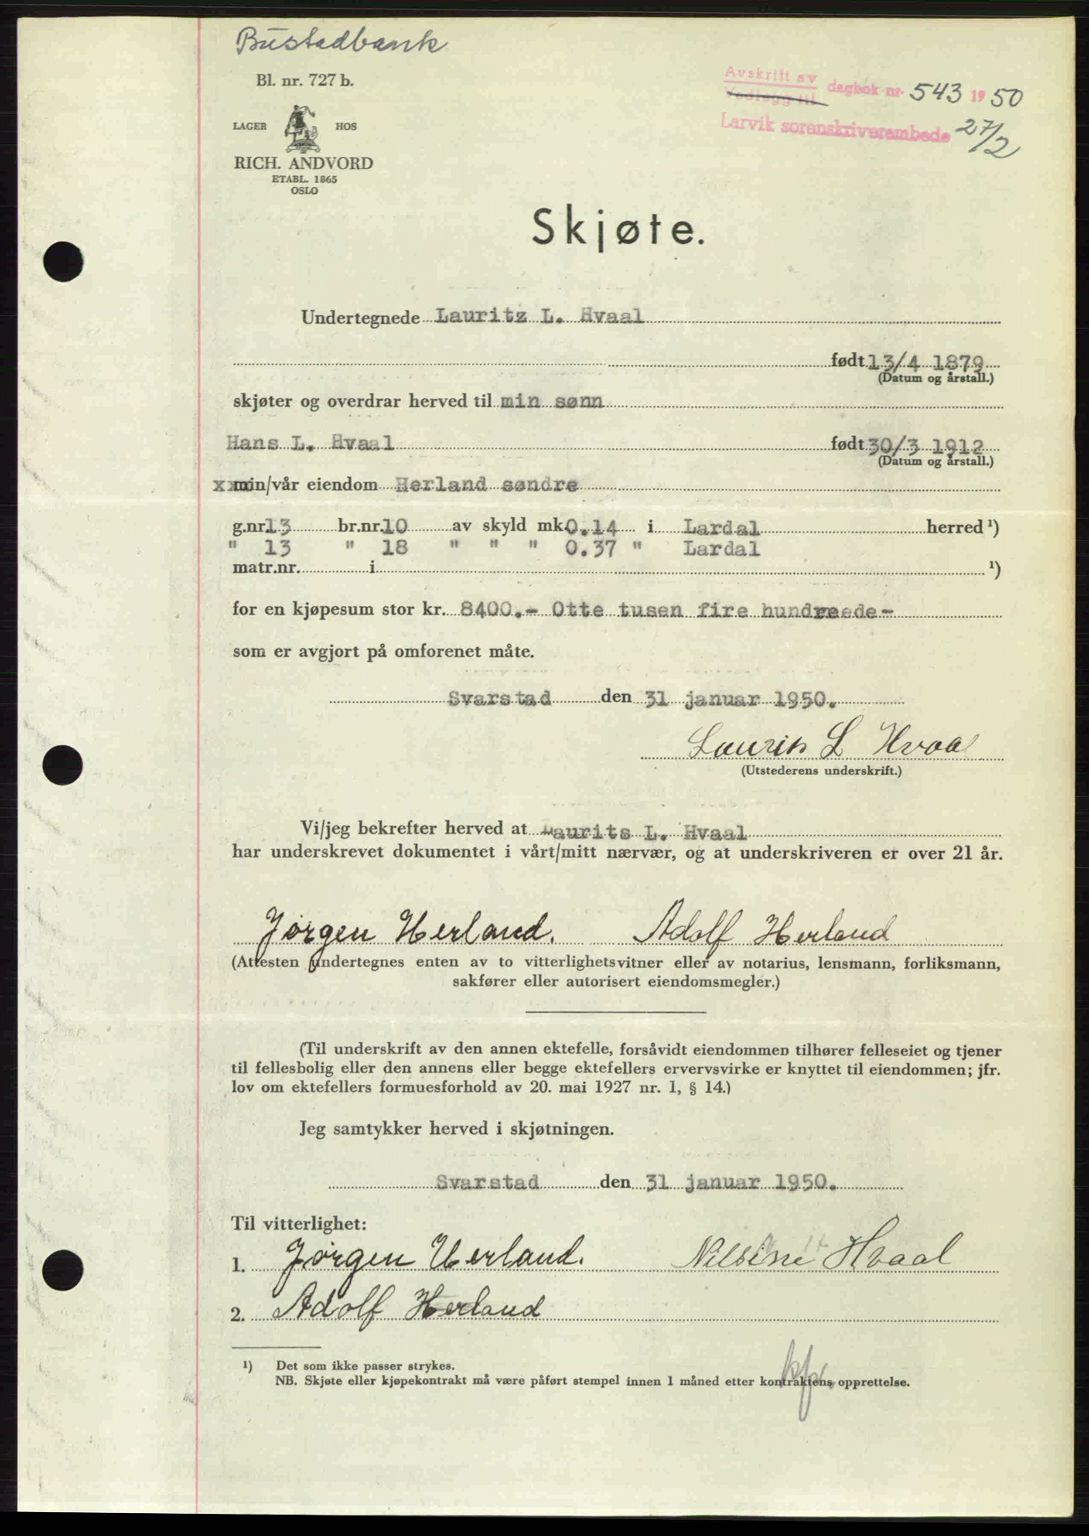 Bustadbank
Bl. nr. 727 b.
LAGER HOS
RICH. ANDVORD
ETABL. 1865
OSLO
Avskrift av
Vedlegg til dagbok nr. 543 1950
Larvik sorenskriverembede 27/2
Skjøte.
Undertegnede Lauritz L. Hvaal
født 13/4 1879
(Datum og årstall.)
skjøter og overdrar herved til min sønn
Hans L. Hvaal født 30/3 1912
(Datum og årstall.)
min/vår eiendom Herland søndre
g.nr. 13 br.nr. 10 av skyld mk. 0.14 i Lardal herred ¹)
" 13 " 18 " " " 0.37 " Lardal
matr.nr. i ¹)
for en kjøpesum stor kr. 8400.- Otte tusen fire hundreede-
som er avgjort på omforenet måte.
Svarstad den 31 januar 1950.
Laurits L Hvaal
(Utstederens underskrift.)
Vi/jeg bekrefter herved at Laurits L. Hvaal
har underskrevet dokumentet i vårt/mitt nærvær, og at underskriveren er over 21 år.
Jørgen Herland. Adolf Herland
(Attesten undertegnes enten av to vitterlighetsvitner eller av notarius, lensmann, forliksmann,
sakfører eller autorisert eiendomsmegler.)
(Til underskrift av den annen ektefelle, forsåvidt eiendommen tilhører felleseiet og tjener
til fellesbolig eller den annens eller begge ektefellers ervervsvirke er knyttet til eiendommen; jfr.
lov om ektefellers formuesforhold av 20. mai 1927 nr. 1, § 14.)
Jeg samtykker herved i skjøtningen.
Svarstad den 31 januar 1950.
Til vitterlighet:
1. Jørgen Herland. Nilsine Hvaal
2. Adolf Herland
¹) Det som ikke passer strykes.
NB. Skjøte eller kjøpekontrakt må være påført stempel innen 1 måned etter kontraktens opprettelse.